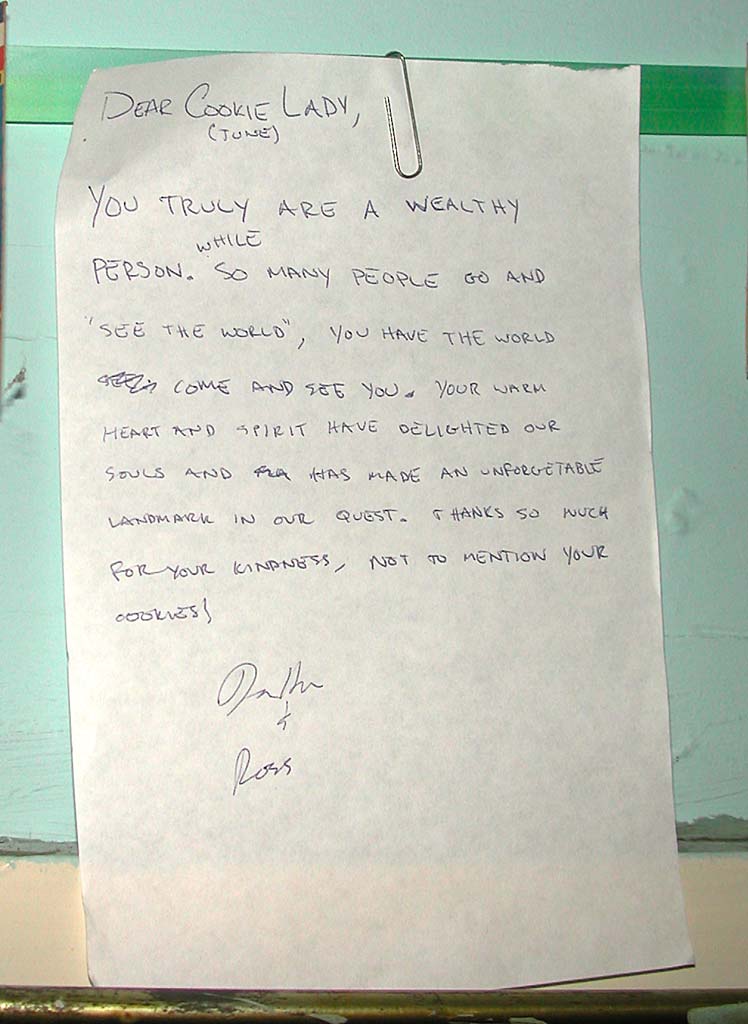 DEAR COOKIE LADY,
(JUNE)
YOU TRULY ARE A WEALTHY
WHILE
PERSON. SO MANY PEOPLE GO AND
"SEE THE WORLD", YOU HAVE THE WORLD
COME AND SEE YOU. YOUR WARM
HEART AND SPIRIT HAVE DELIGHTED OUR
SOULS AND HAS MADE AN UNFORGETABLE
LANDMARK IN OUR QUEST. THANKS SO MUCH
FOR YOUR KINDNESS, NOT TO MENTION YOUR
COOKIES!
&
Ross